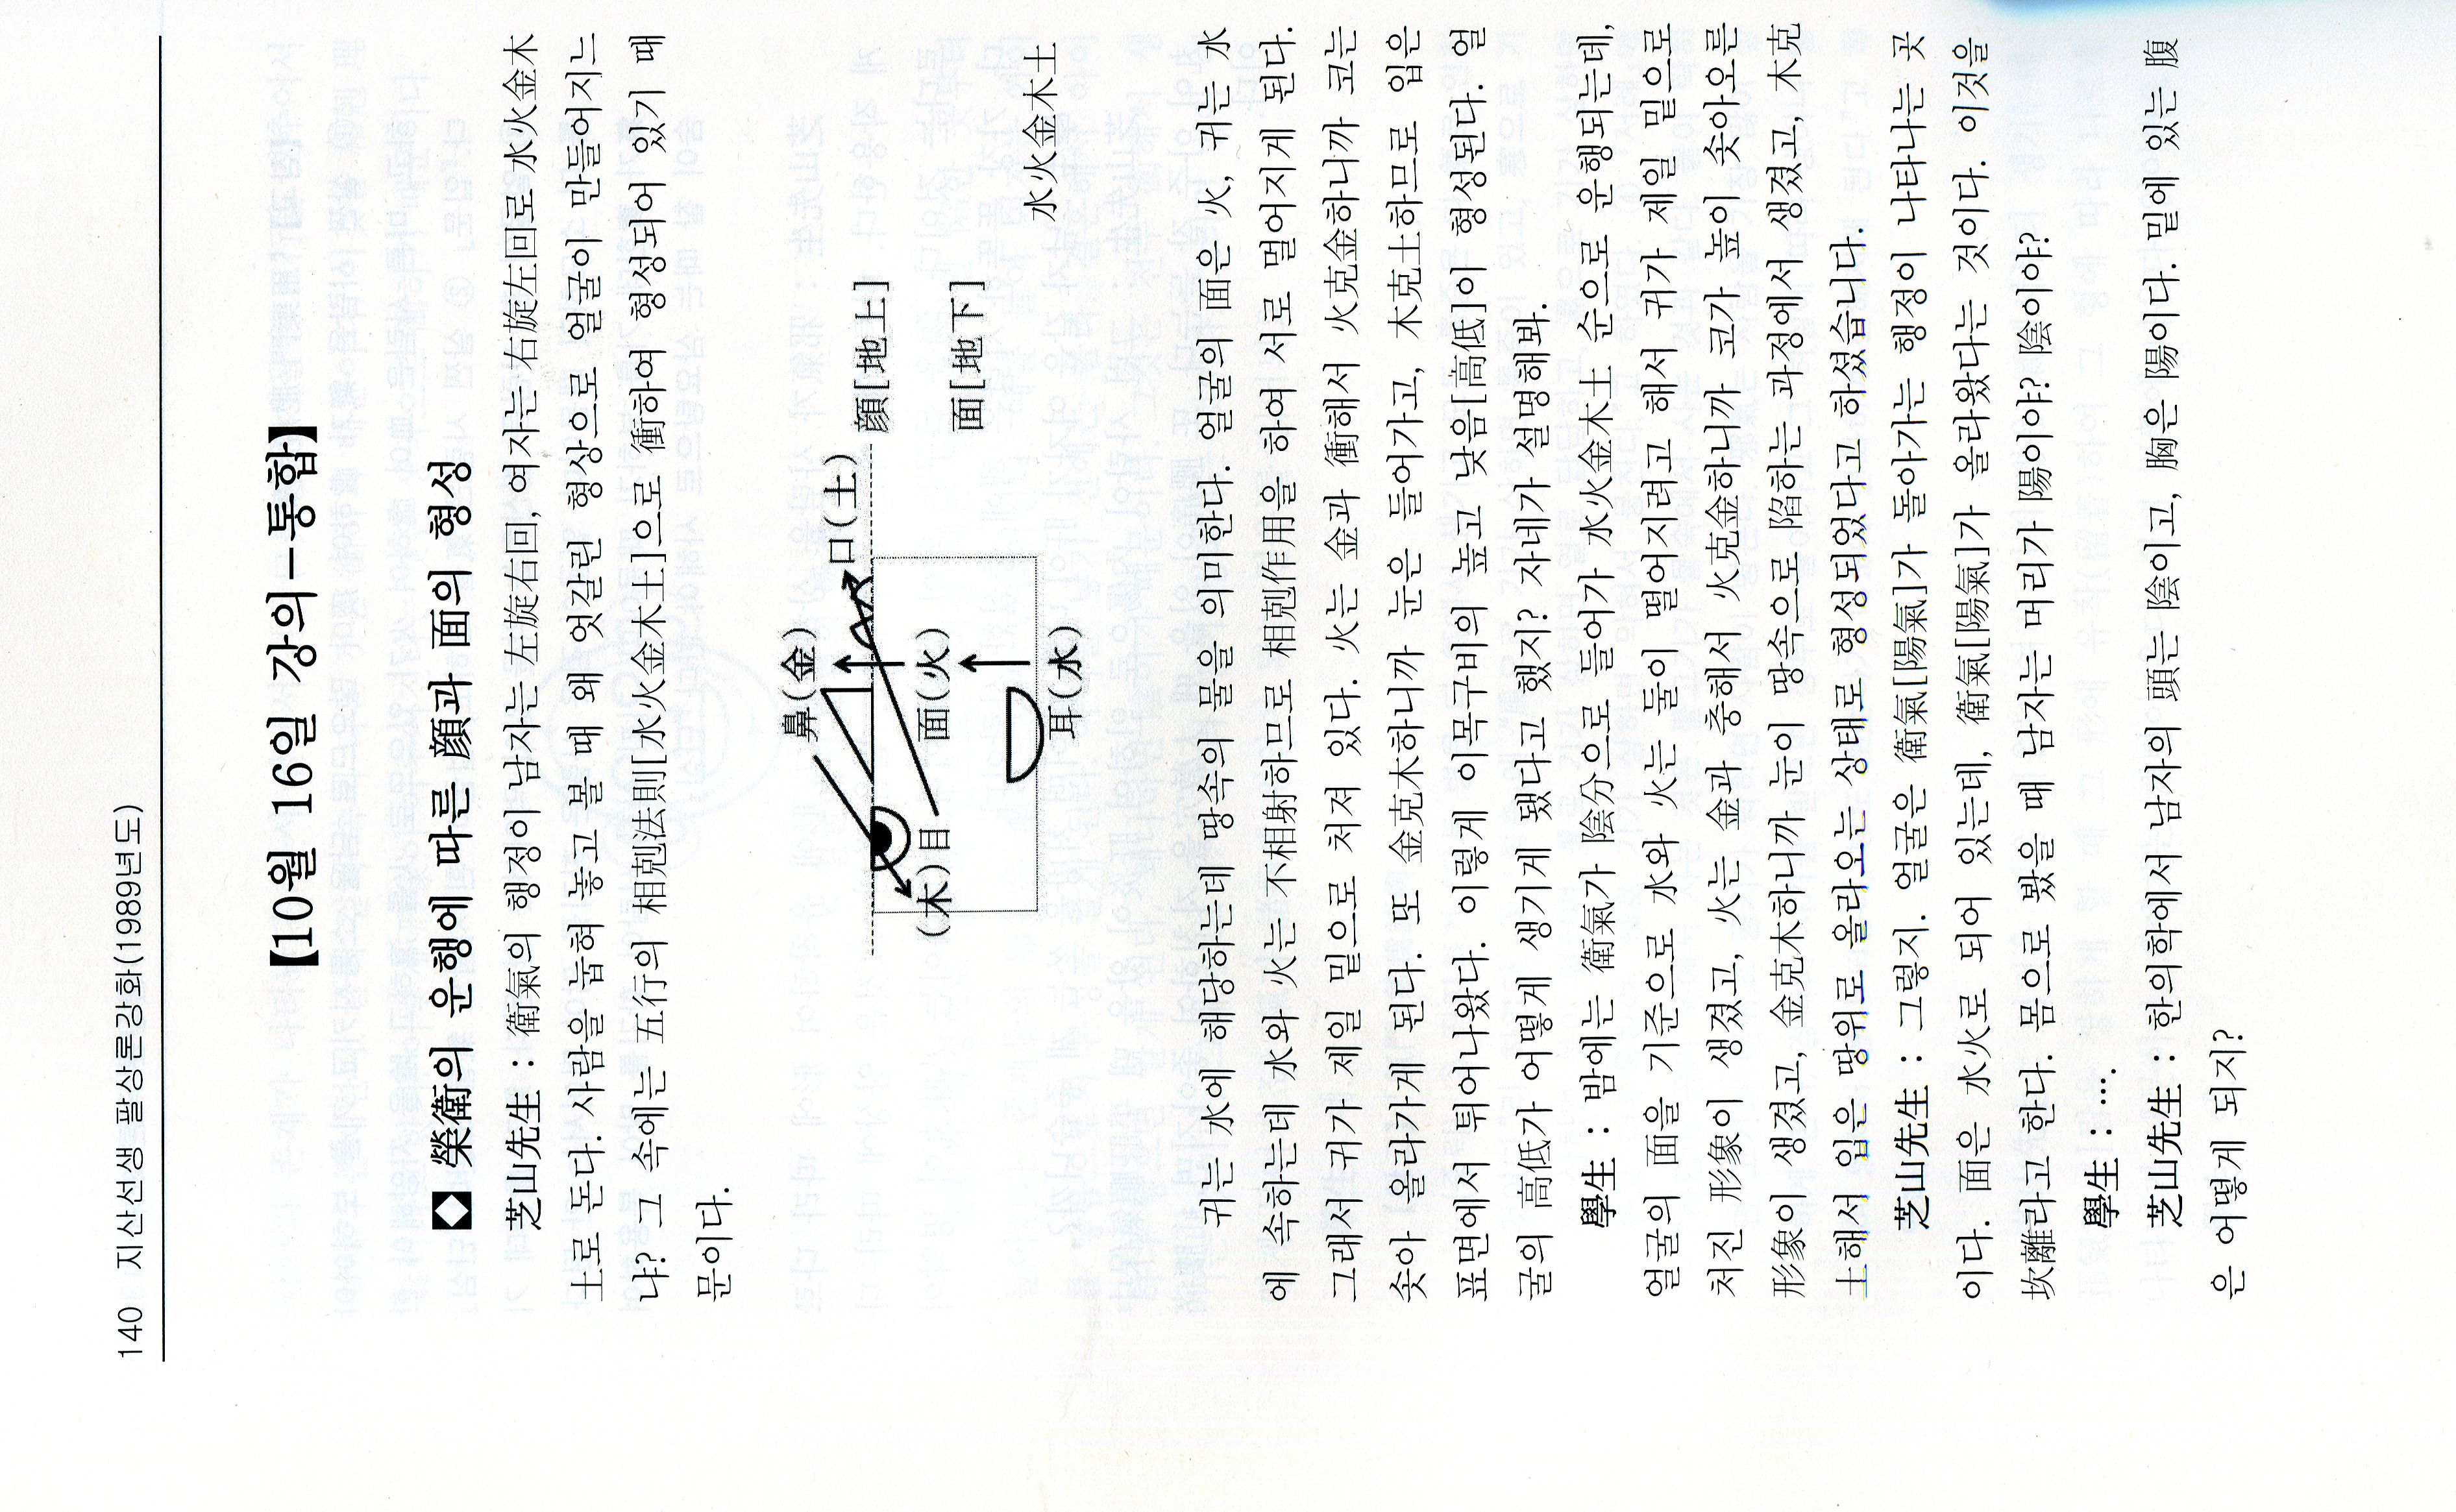 140 지산선생 팔상론강화(1989년도)
【10월 16일 강의－통합】
◈ 榮衛의 운행에 따른 顔과 面의 형성
芝山先生 : 衛氣의 행정이 남자는 左旋右回, 여자는 右旋左回로 水火金木
土로 돈다. 사람을 눕혀 놓고 볼 때 왜 엇갈린 형상으로 얼굴이 만들어지느
냐? 그 속에는 五行의 相剋法則[水火金木土]으로 衝하여 형성되어 있기 때
문이다.
鼻(金)
口(土)
顔[地上]
(木)目
面(火)
面[地下]
耳(水)
水火金木土
귀는 水에 해당하는데 땅속의 물을 의미한다. 얼굴의 面은 火, 귀는 水
에 속하는데 水와 火는 不相射하므로 相剋作用을 하여 서로 멀어지게 된다.
그래서 귀가 제일 밑으로 처져 있다. 火는 金과 衝해서 火克金하니까 코는
솟아 올라가게 된다. 또 金克木하니까 눈은 들어가고, 木克土하므로 입은
표면에서 튀어나왔다. 이렇게 이목구비의 높고 낮음[高低]이 형성된다. 얼
굴의 高低가 어떻게 생기게 됐다고 했지? 자네가 설명해봐.
學生 : 밤에는 衛氣가 陰分으로 들어가 水火金木土 순으로 운행되는데,
얼굴의 面을 기준으로 水와 火는 둘이 떨어지려고 해서 귀가 제일 밑으로
처진 形象이 생겼고, 火는 金과 충해서 火克金하니까 코가 높이 솟아오른
形象이 생겼고, 金克木하니까 눈이 땅속으로 陷하는 과정에서 생겼고, 木克
土해서 입은 땅위로 올라오는 상태로 형성되었다고 하셨습니다.
芝山先生 : 그렇지. 얼굴은 衛氣[陽氣]가 돌아가는 행정이 나타나는 곳
이다. 面은 水火로 되어 있는데, 衛氣[陽氣]가 올라왔다는 것이다. 이것을
坎離라고 한다. 몸으로 봤을 때 남자는 머리가 陽이야? 陰이야?
學生 : ….
芝山先生 : 한의학에서 남자의 頭는 陰이고, 胸은 陽이다. 밑에 있는 腹
은 어떻게 되지?